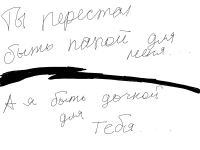 Ты перестал
быть папой для
меня...
А я быть дочкой
для
тебя....